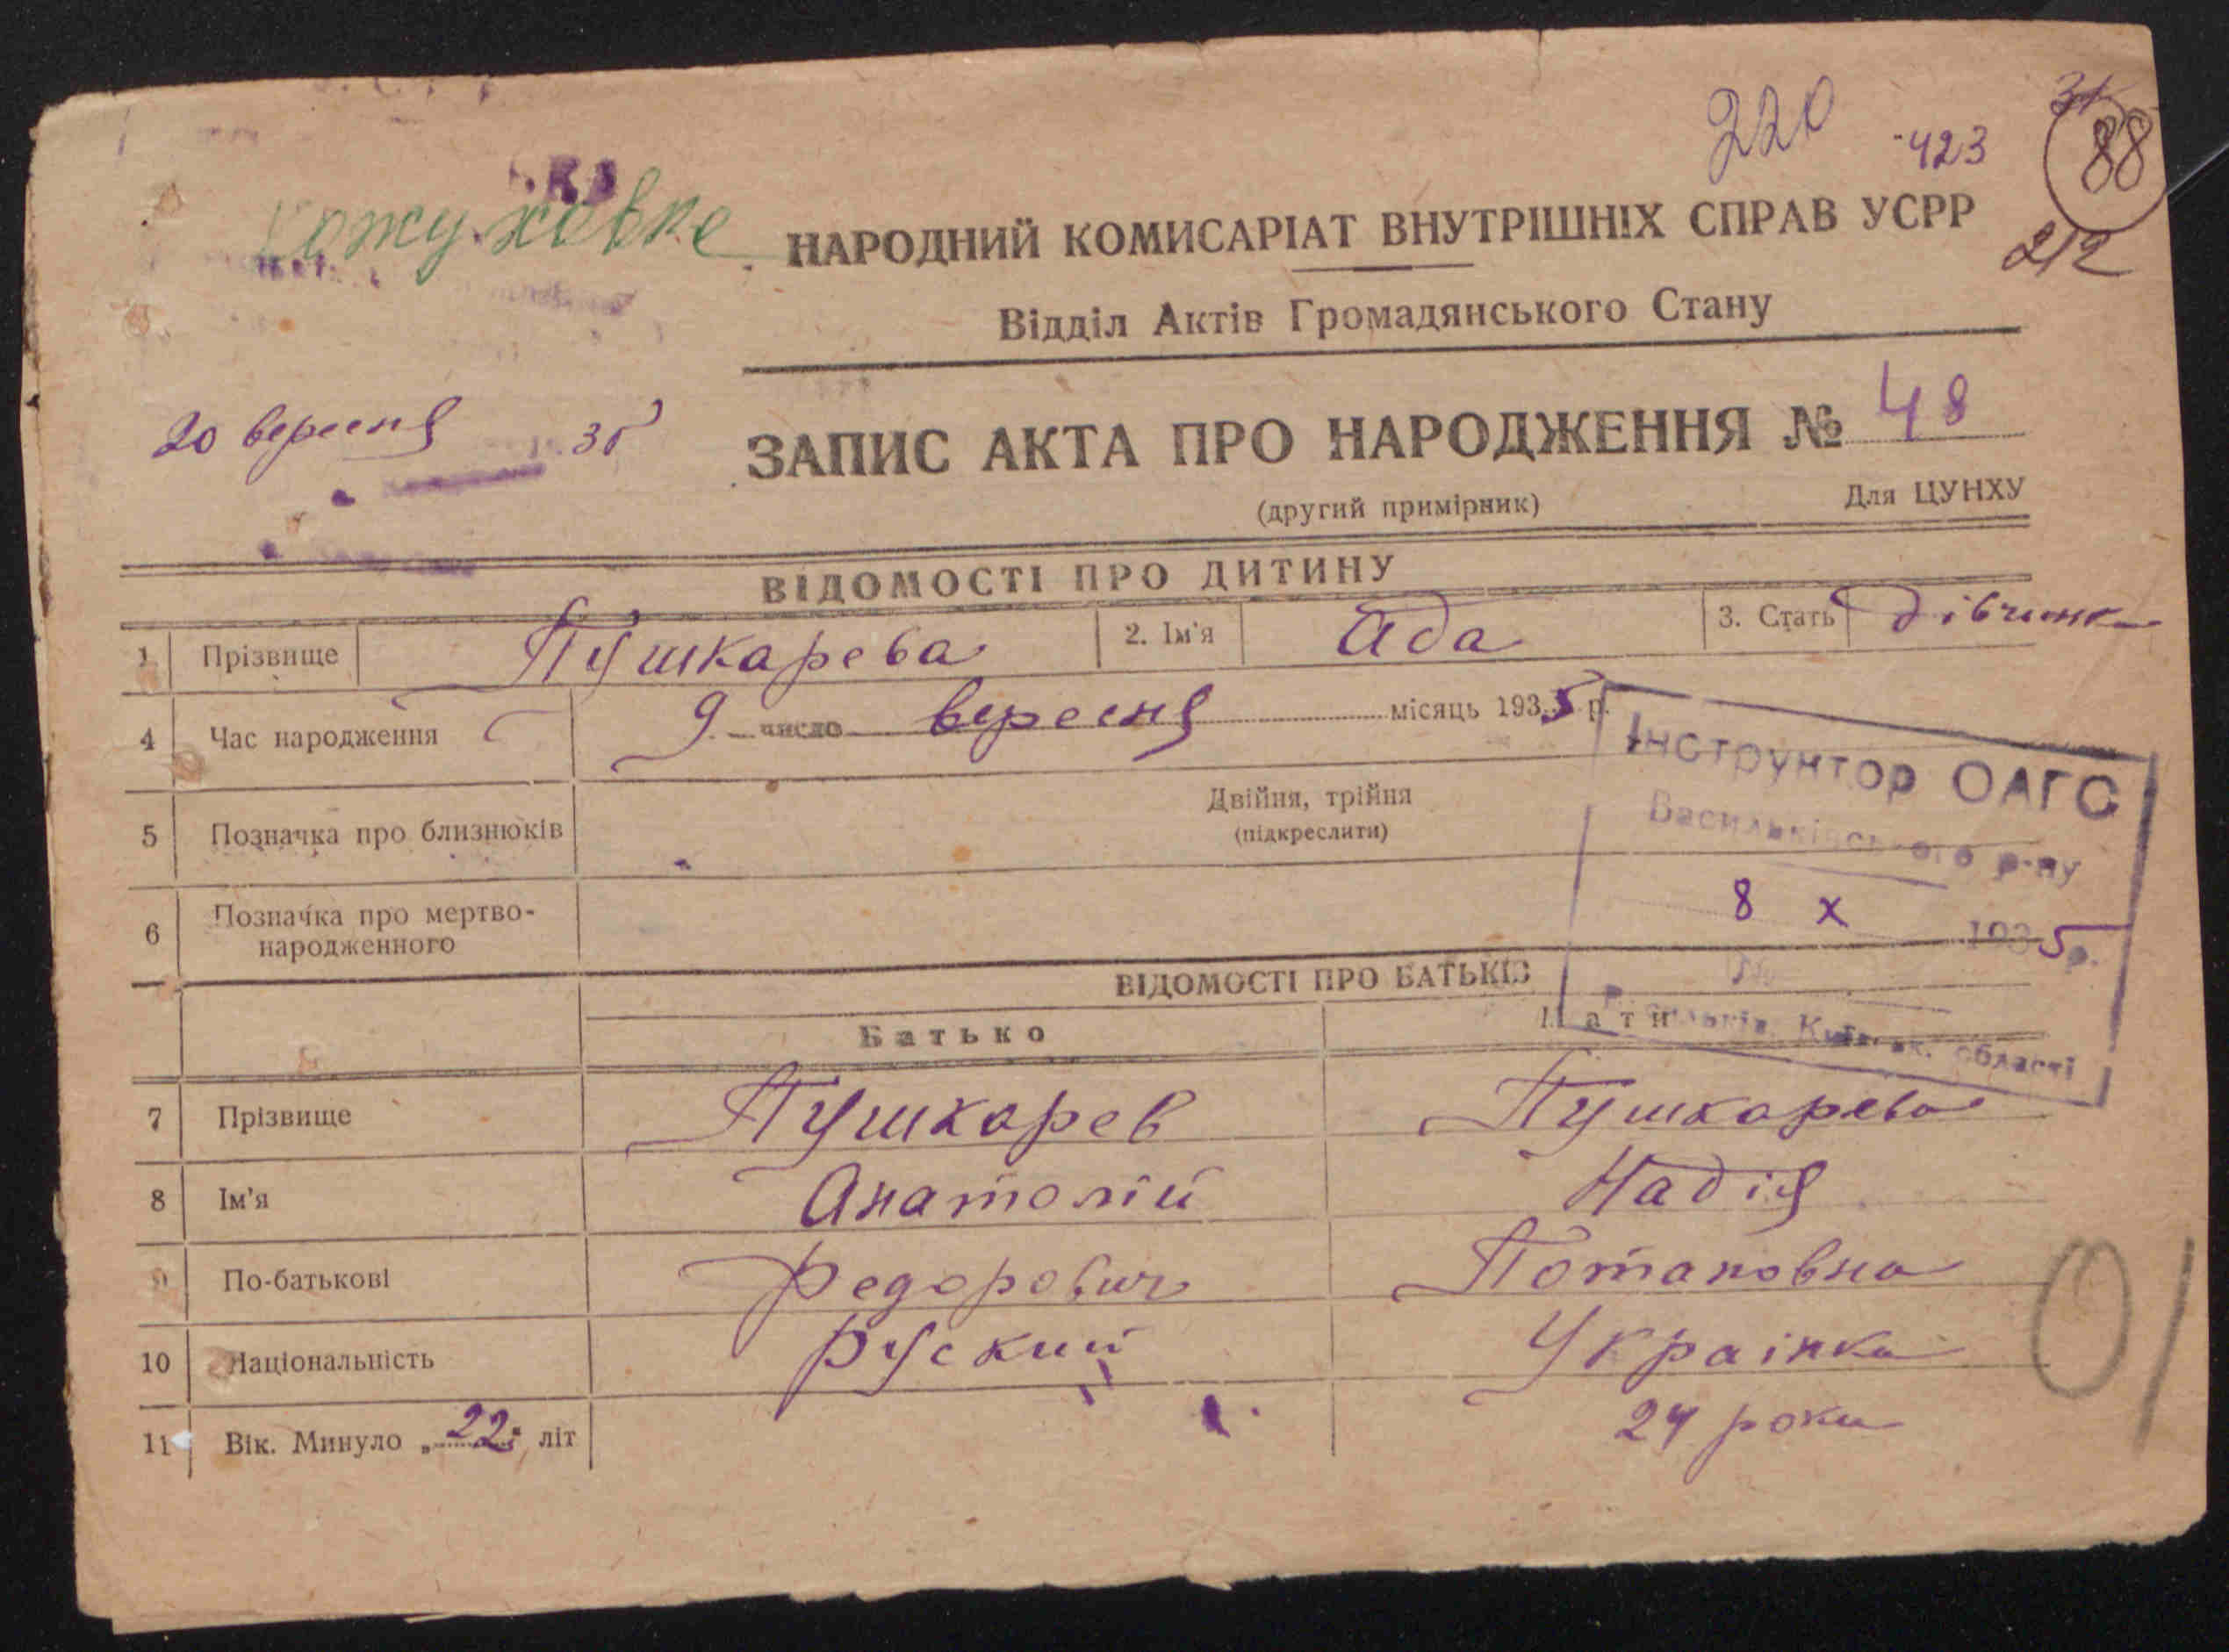 220 423 88
212
Кожуховке
НАРОДНИЙ КОМИСАРІАТ ВНУТРІШНІХ СПРАВ УСРР
Відділ Актів Громадянського Стану
20 вересня 35
ЗАПИС АКТА ПРО НАРОДЖЕННЯ № 48
(другий примірник) Для ЦУНХУ
ВІДОМОСТІ ПРО ДИТИНУ
1 Прізвище Пушкарева 2. Ім'я Ада 3. Стать дівчинка
4 Час народження 9 число вересня місяць 1935 р.
Інструктор ОАГС
Васильківського р-ну
8 X 1935р.
Київськ. області
5 Позначка про близнюків Двійня, трійня
(підкреслити)
6 Позначка про мертво-
народженного
ВІДОМОСТІ ПРО БАТЬКІВ
Батько Мати
7 Прізвище Пушкарев Пушкарева
8 Ім'я Анатолій Надія
9 По-батькові Федорович Потаповна
10 Національність Руский Украінка
11 Вік. Минуло „22" літ 24 роки